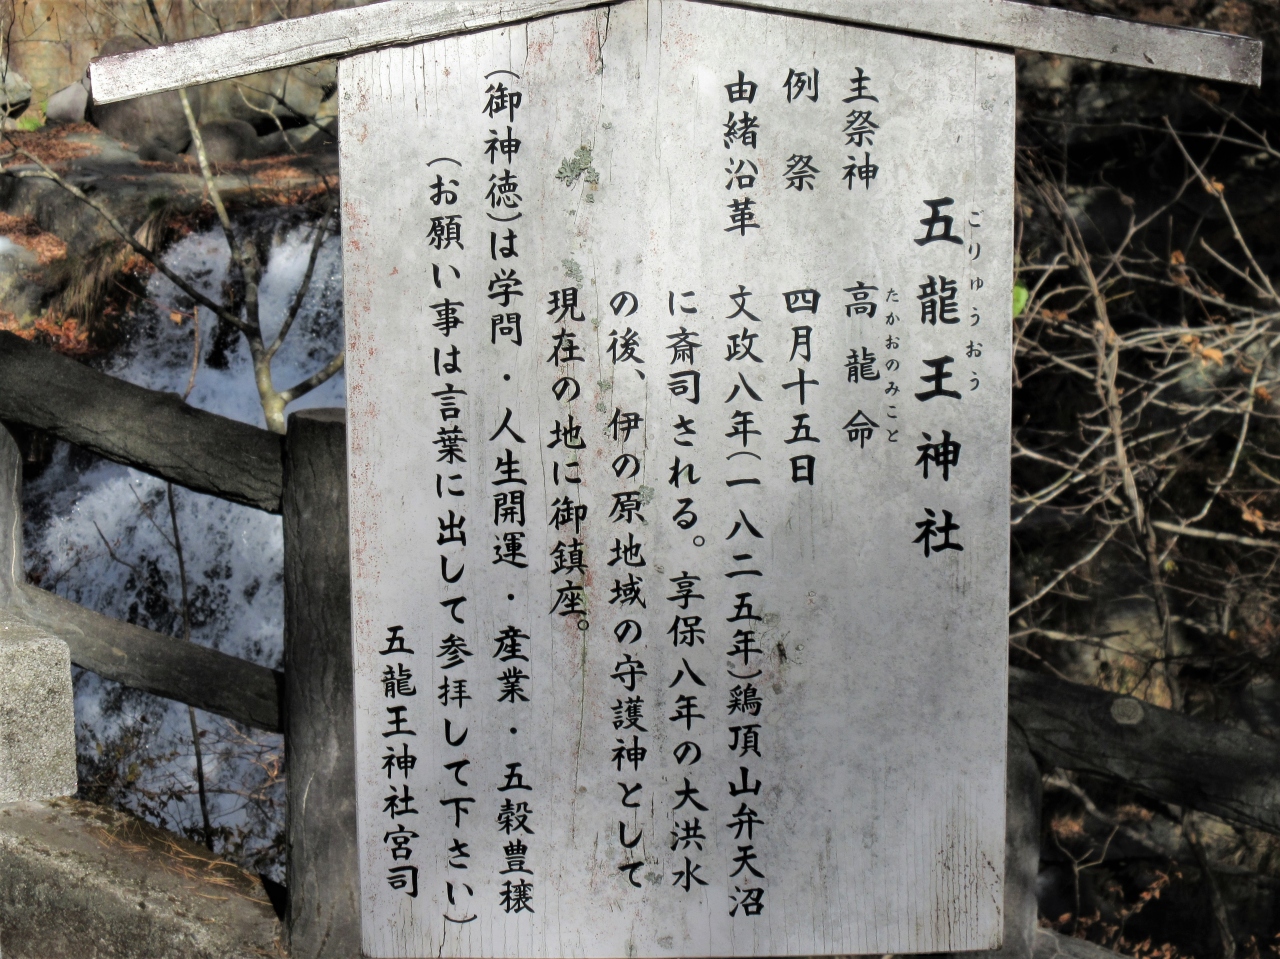 五龍王神社
ごりゅうおう
主祭神 高龍命
たかおのみこと
例祭 四月十五日
由緒沿革 文政八年(一八二五年)鶏頂山弁天沼
に斎司される。享保八年の大洪水
の後、伊の原地域の守護神として
現在の地に御鎮座。
(御神徳)は学問・人生開運・産業・五穀豊穣
(お願い事は言葉に出して参拝して下さい)
五龍王神社宮司